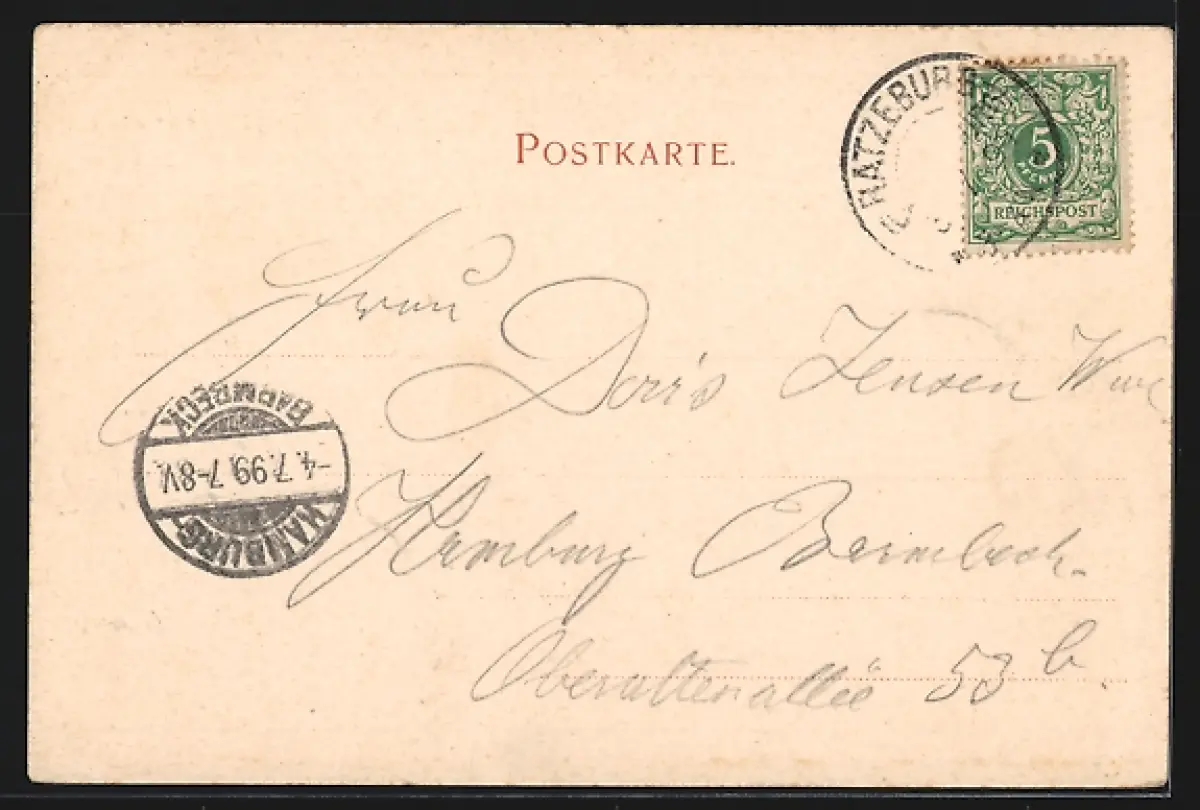 POSTKARTE.
RATZEBURG
5
PFENNIG
REICHSPOST
Frau
Doris Jensen
BARMBECK
-4.7.99.7-8V.
HAMBURG
Hamburg Barmbeck.
Oberaltenallee 53 b.